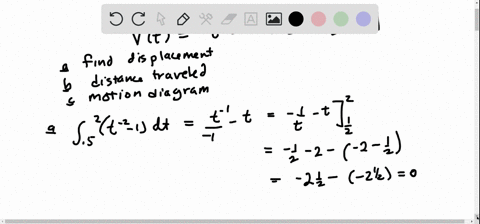 V(t) =
a find displacement
b distance traveled
c motion diagram
a ∫.5^2 (t^-2 -1) dt = t^-1/-1 - t = -1/t - t ]_1/2^2
= -1/2 - 2 - (-2 - 1/2)
= -2 1/2 - (-2 1/2) = 0